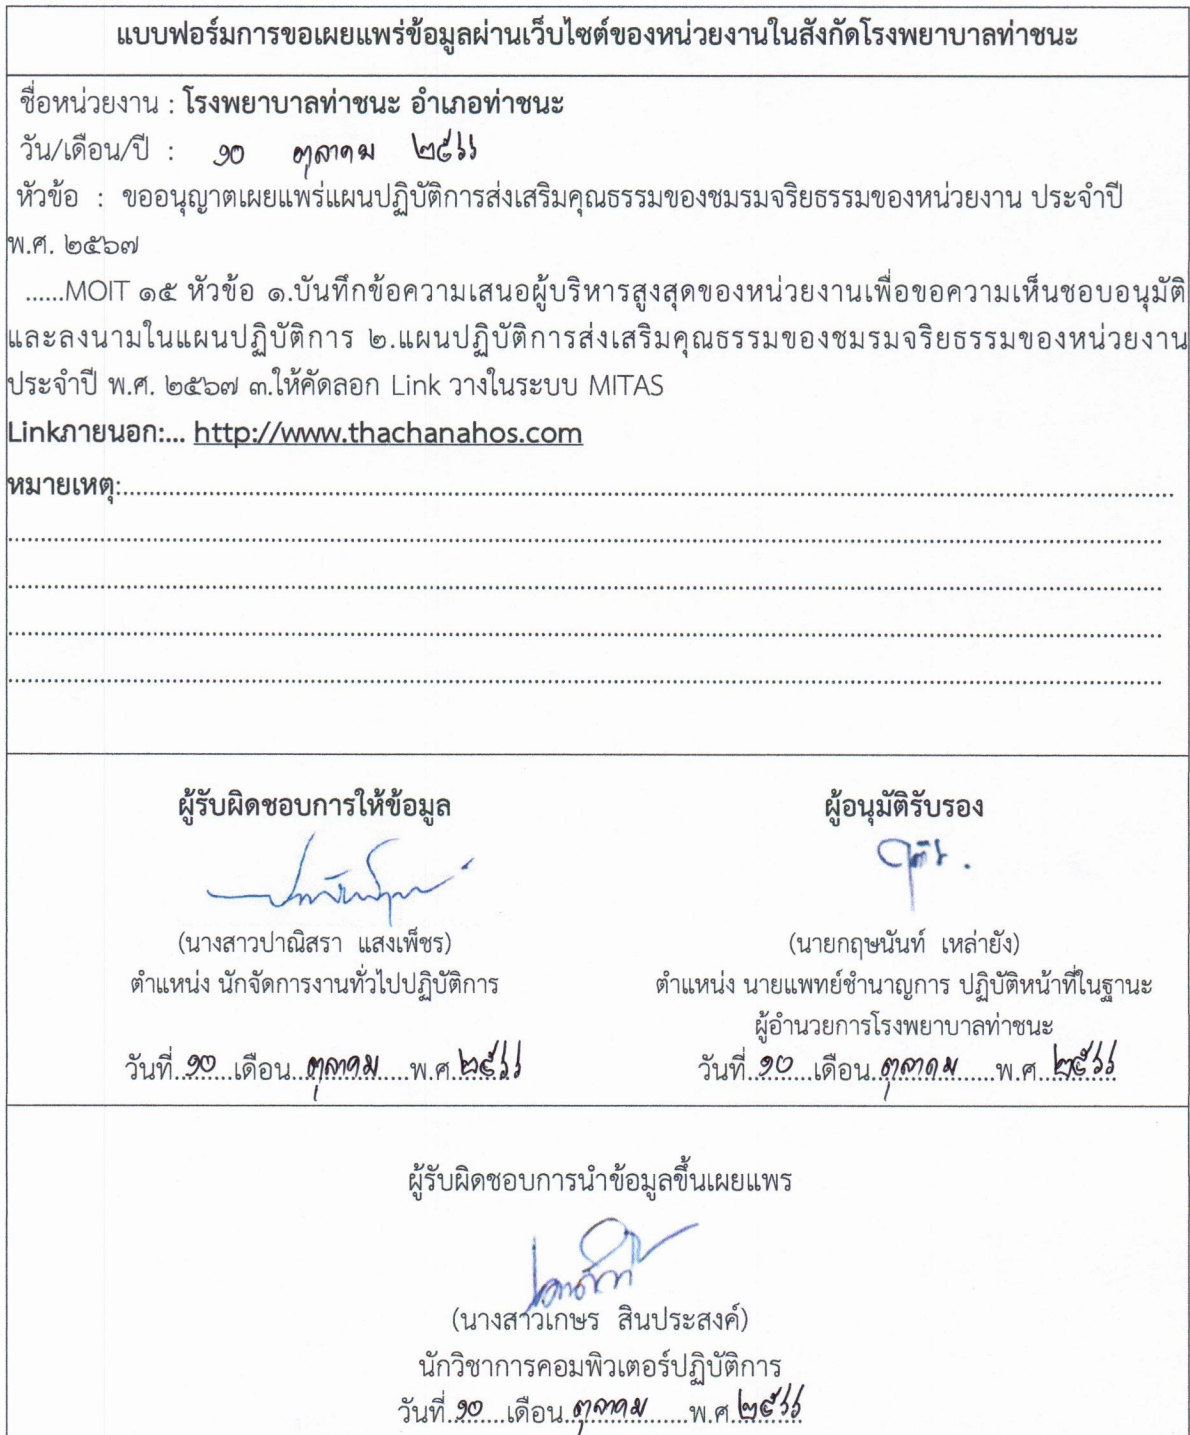 แบบฟอร์มการขอเผยแพร่ข้อมูลผ่านเว็บไซต์ของหน่วยงานในสังกัดโรงพยาบาลท่าชนะ
ชื่อหน่วยงาน : โรงพยาบาลท่าชนะ อำเภอท่าชนะ
วัน/เดือน/ปี : ๑๐ ตุลาคม ๒๕๖๖
หัวข้อ : ขออนุญาตเผยแพร่แผนปฏิบัติการส่งเสริมคุณธรรมของชมรมจริยธรรมของหน่วยงาน ประจำปี
พ.ศ. ๒๕๖๗
......MOIT ๑๕ หัวข้อ ๑.บันทึกข้อความเสนอผู้บริหารสูงสุดของหน่วยงานเพื่อขอความเห็นชอบอนุมัติ
และลงนามในแผนปฏิบัติการ ๒.แผนปฏิบัติการส่งเสริมคุณธรรมของชมรมจริยธรรมของหน่วยงาน
ประจำปี พ.ศ. ๒๕๖๗ ๓.ให้คัดลอก Link วางในระบบ MITAS
Linkภายนอก:... http://www.thachanahos.com
หมายเหตุ:
ผู้รับผิดชอบการให้ข้อมูล ผู้อนุมัติรับรอง
(นางสาวปาณิสรา แสงเพ็ชร) (นายกฤษนันท์ เหล่ายัง)
ตำแหน่ง นักจัดการงานทั่วไปปฏิบัติการ ตำแหน่ง นายแพทย์ชำนาญการ ปฏิบัติหน้าที่ในฐานะ
ผู้อำนวยการโรงพยาบาลท่าชนะ
วันที่..๑๐....เดือน..ตุลาคม.....พ.ศ.๒๕๖๖ วันที่..๑๐....เดือน..ตุลาคม.....พ.ศ...๒๕๖๖
ผู้รับผิดชอบการนำข้อมูลขึ้นเผยแพร
(นางสาวเกษร สินประสงค์)
นักวิชาการคอมพิวเตอร์ปฏิบัติการ
วันที่..๑๐....เดือน..ตุลาคม.....พ.ศ..๒๕๖๖